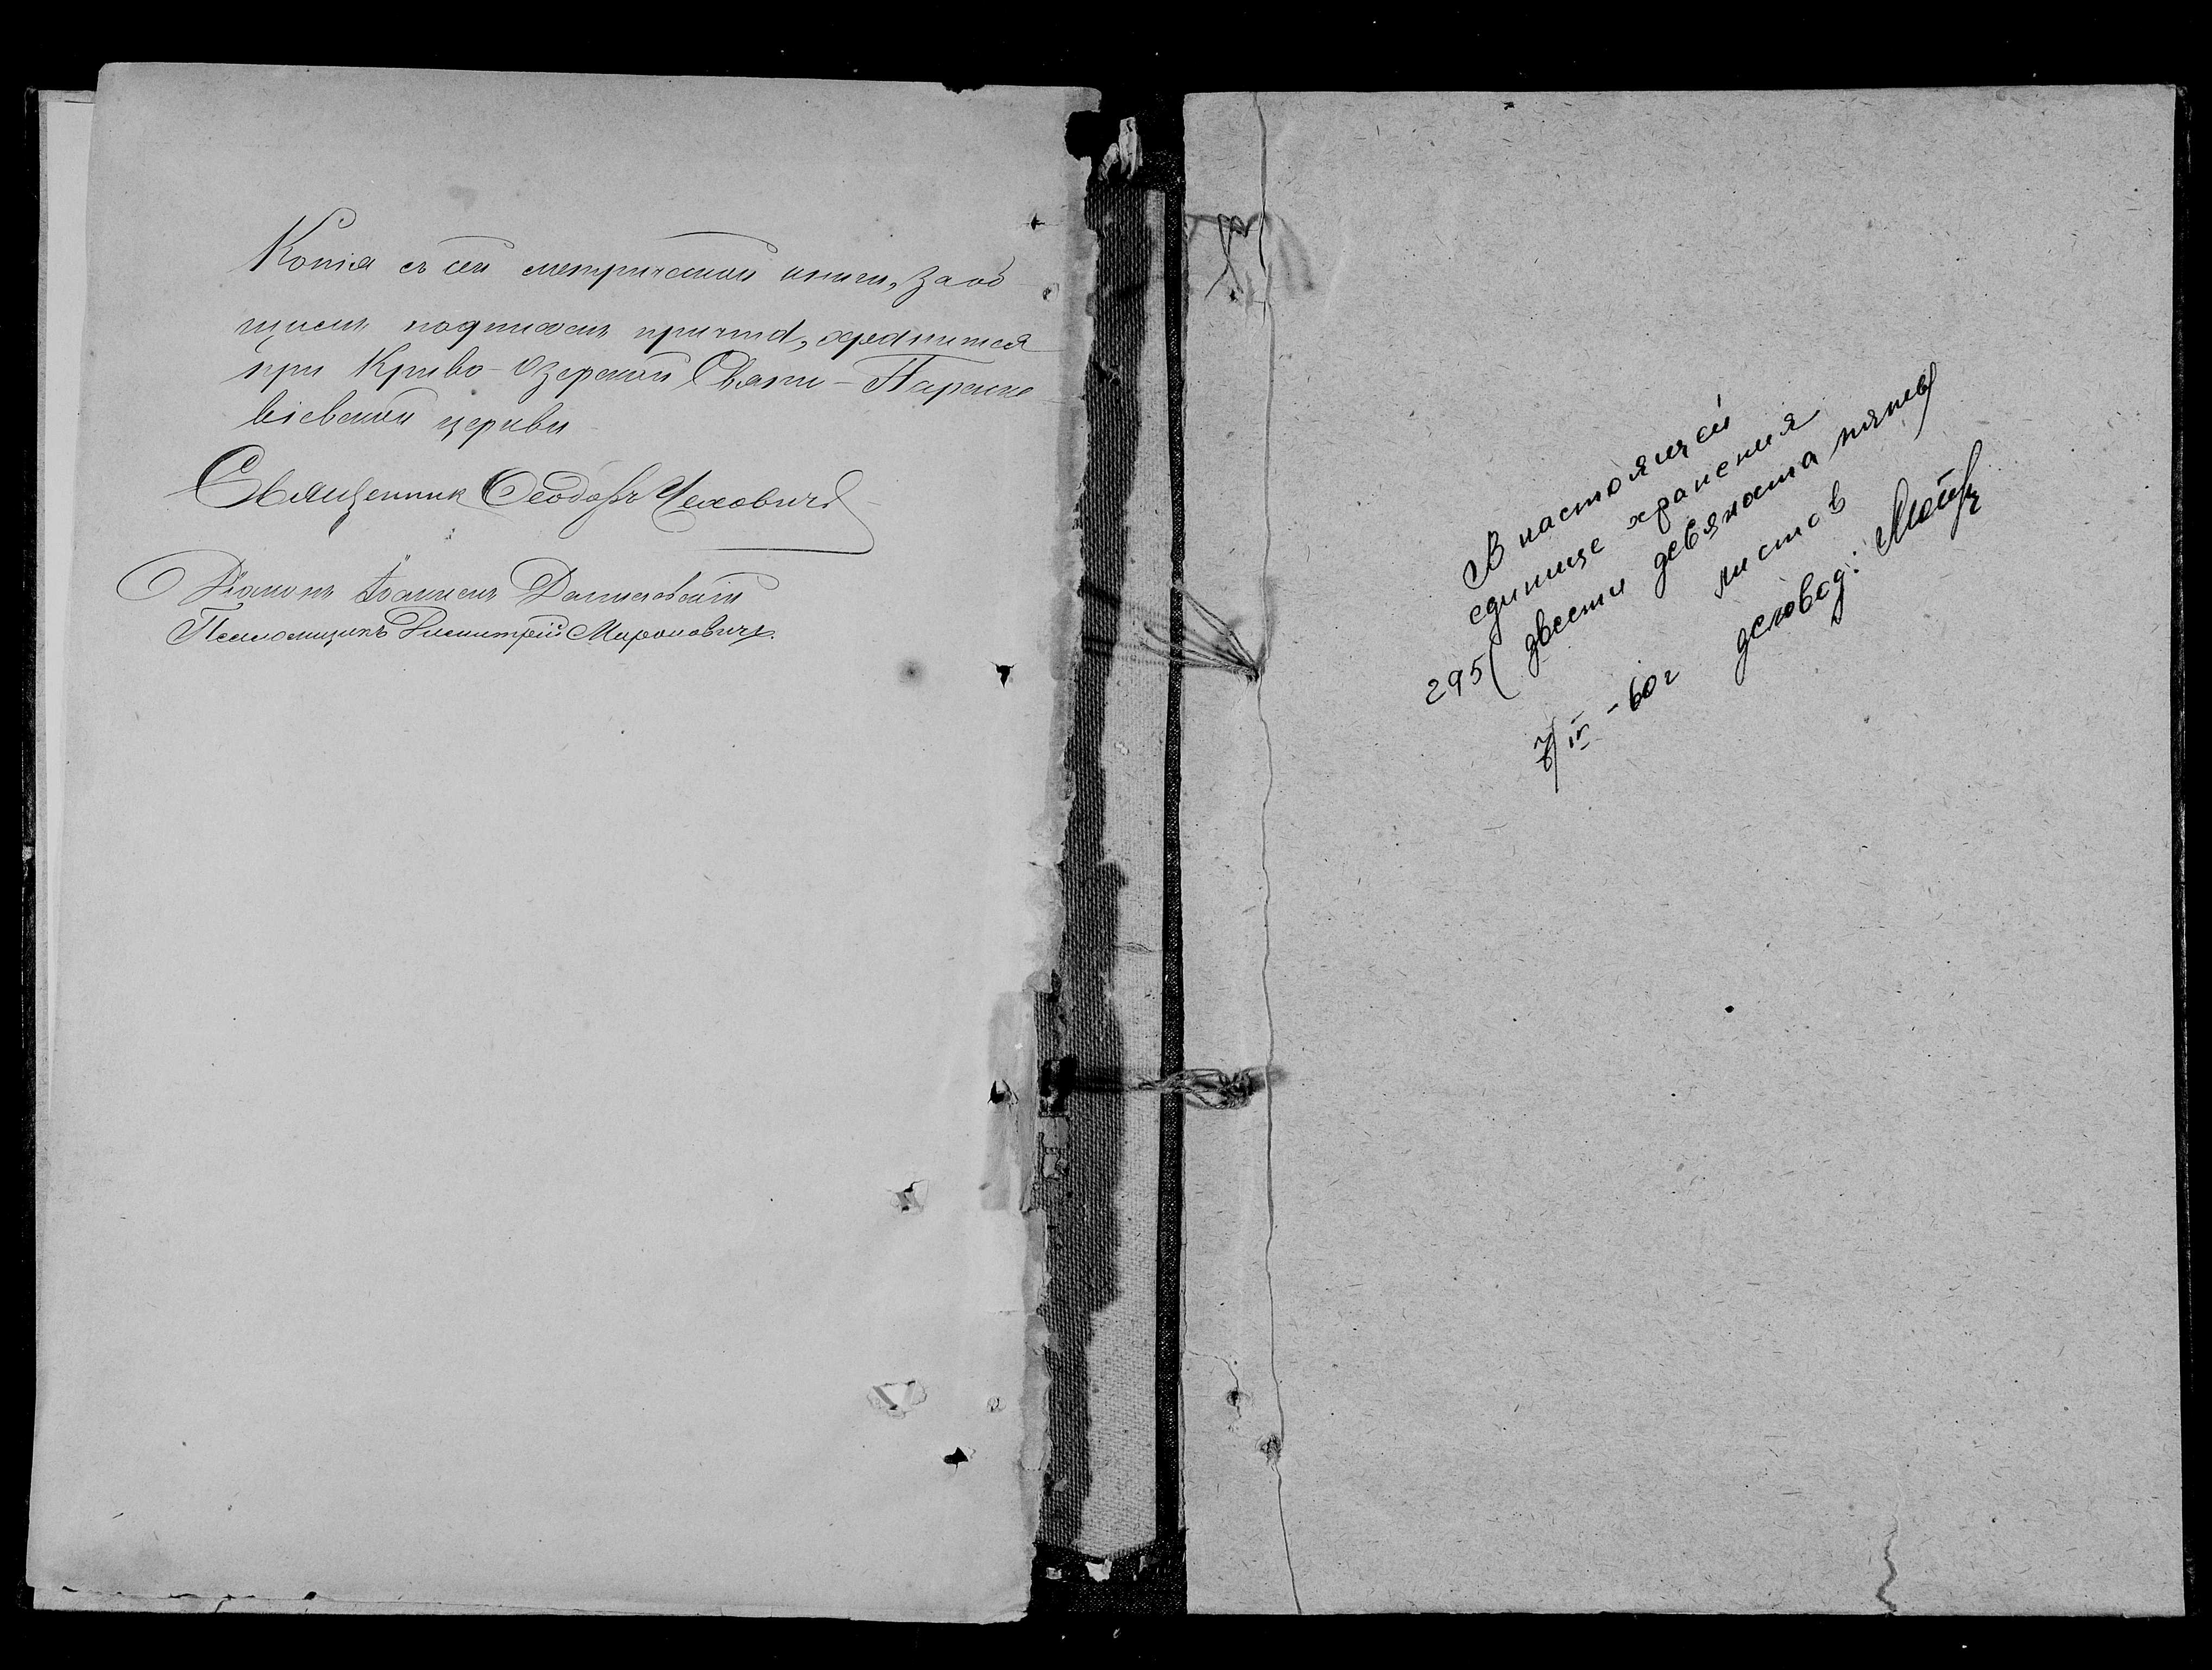 Копія съ сей метрической книги, за об
щимъ подписомъ причта, хранится
при Криво-Озерской Свято-Параске
віевской церкви
Священникъ Ѳеодоръ Чеховичъ
Діаконъ Іоаннъ
Псаломщикъ Димитрій Мироновичъ
В настоящей
единице хранения
295 (двести девяносто пять)
листов
7/IV-60г деловод: